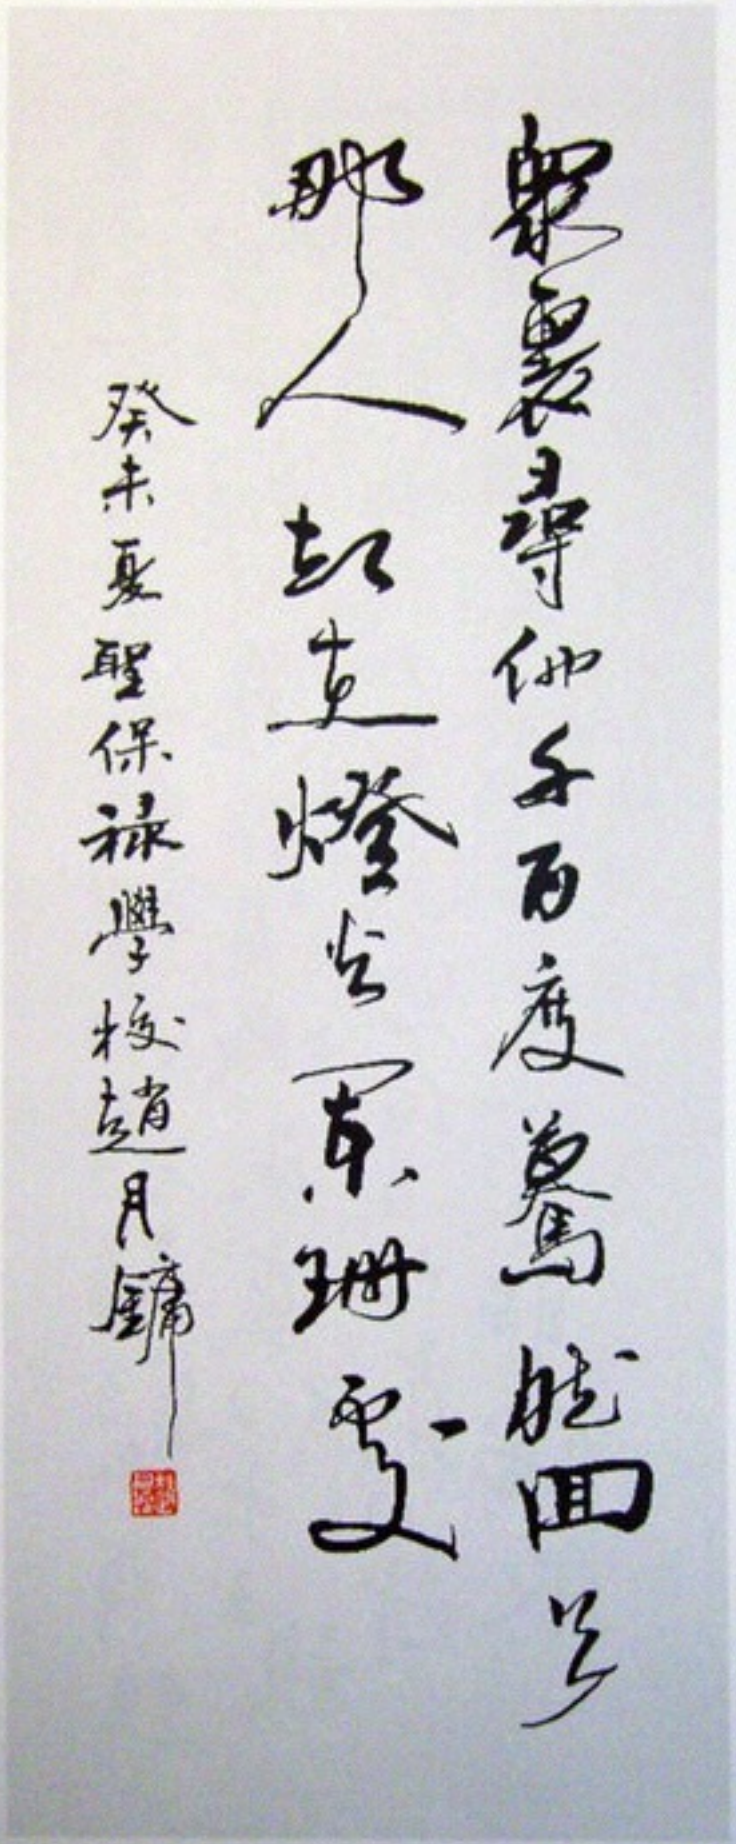 眾裏尋他千百度驀然回首
那人却在燈火闌珊處
癸未夏聖保祿學校趙月鏞